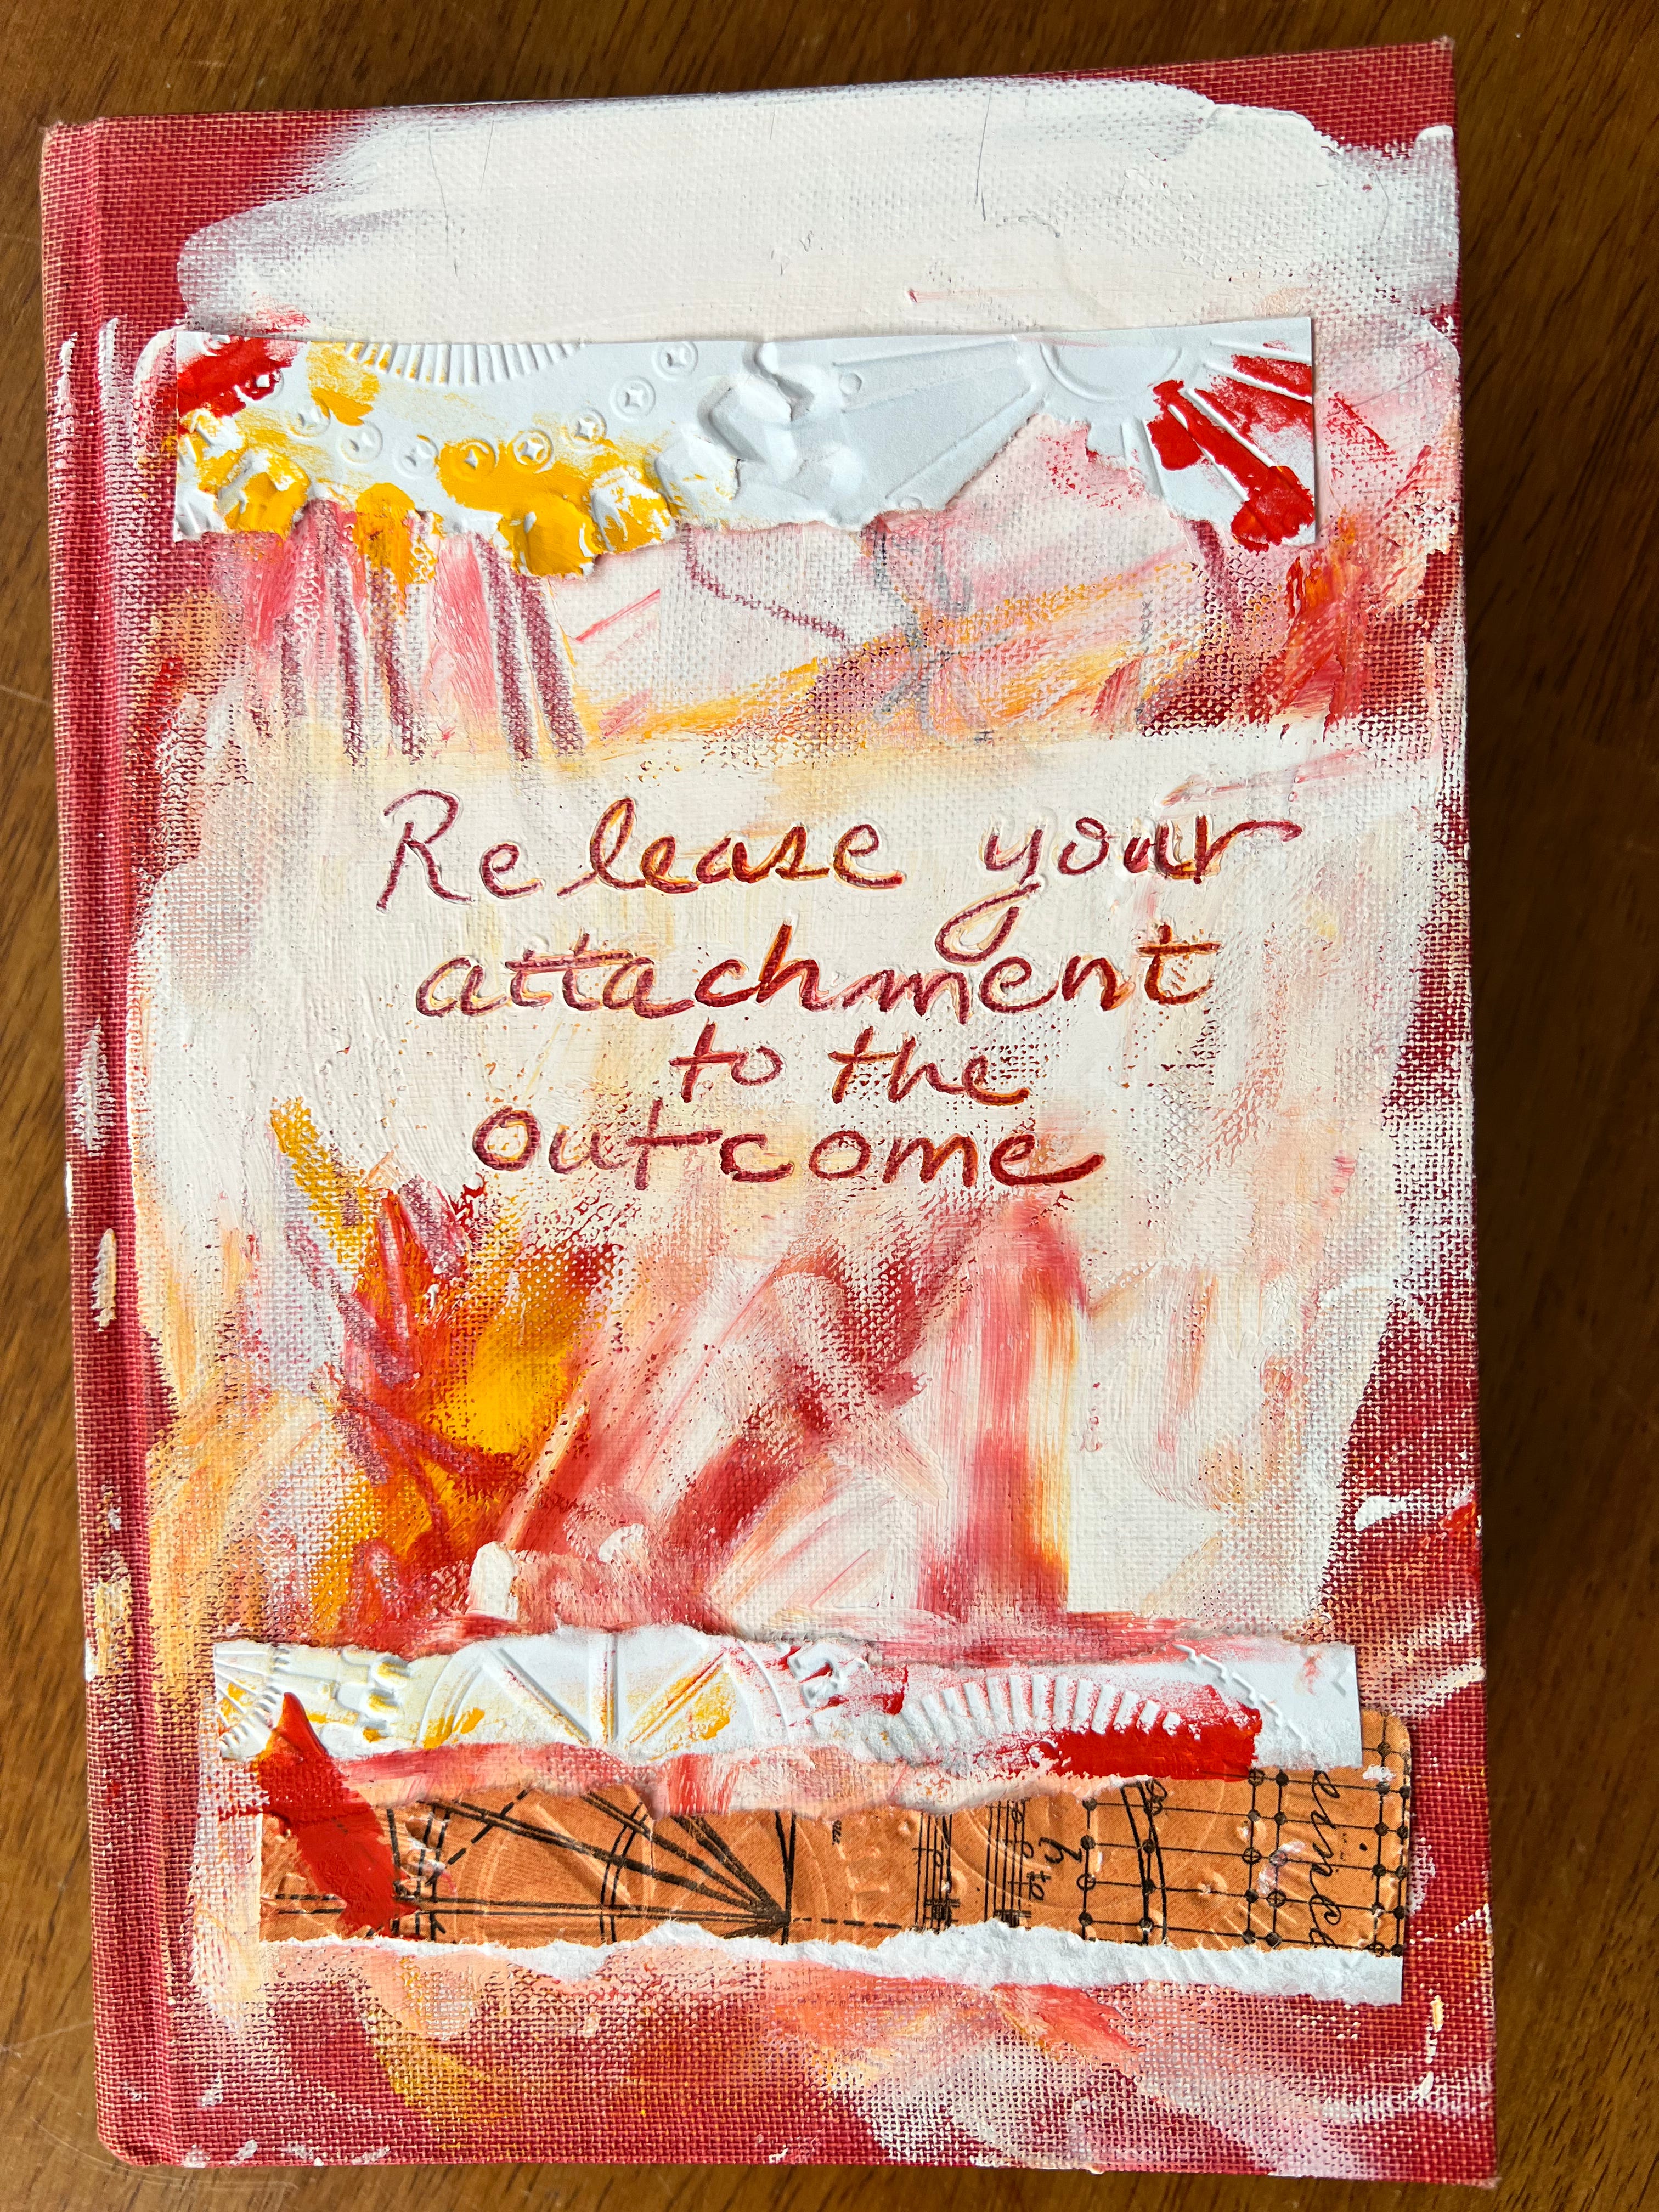 Release your
attachment
to the
outcome